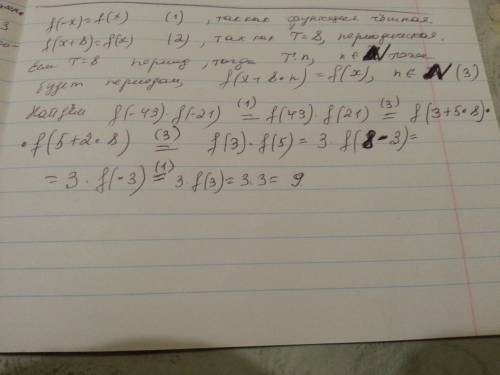 f(-x)=f(x) (1) , так как функция чётная.
f(x+8)=f(x) (2) , так как T=8, периодическая.
Если T=8 период, тогда T·n, n∈N тоже
будет периодом, f(x+8·n)=f(x), n∈N (3)
Найдём f(-43)·f(-21) (1)= f(43)·f(21) (3)= f(3+5·8)·
·f(5+2·8) (3)= f(3)·f(5)= 3·f(8-3)=
=3·f(-3) (1)= 3 f(3)=3·3=9